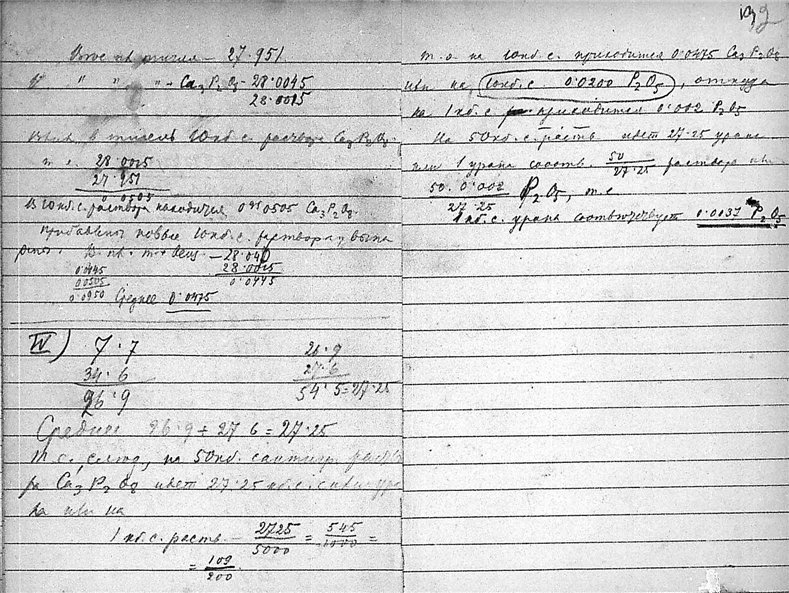 27.951
" " " + Ca₃P₂O₈ – 28.0045
28.0015
10 кб. с. раствора Ca₃P₂O₈.
т. е. 28.0015
27.951
0.0505
В 10 кб. с. раствора находится 0.0505 Ca₃P₂O₈.
новые 10 кб. с. раствора и выпа
28.040
0.0445 28.0015
0.0505 0.0445
0.0950 Среднее 0.0475
IV) 7.7 26.9
34.6 27.6
26.9 54.5=27.25
Среднее 26.9 + 27.6 = 27.25
на 50 кб. сантим. раство
ра Ca₃P₂O₈ идет 27.25 кб. с.
на или на
1 кб. с. раств. – 2725/5000 = 545/1000 =
= 109/200.
192
т. о. на 10 кб. с. приходится 0.0475 Ca₃P₂O₈
или на 10 кб. с 0.0200 P₂O₅, откуда
на 1 кб. с приходится 0.002 P₂O₅
На 50 кб. с. раств идет 27.25 урана
или 1 урана соотв. 50/27.25 раствора или
50. 0.002/27.25 P₂O₅, т. е
1 кб. с. урана соответствует 0.0037 P₂O₅